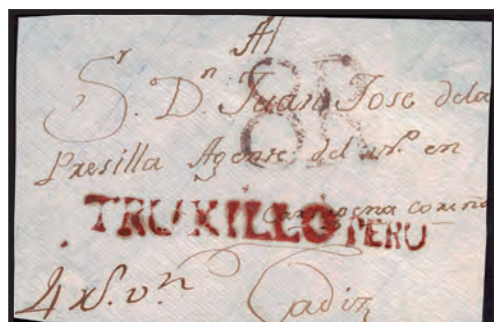 Al
Sr. Dn. Juan Jose dela
8R
Presilla Agente del nº. en
TRUXILLO PERU
4 rs. vn
Cadiz